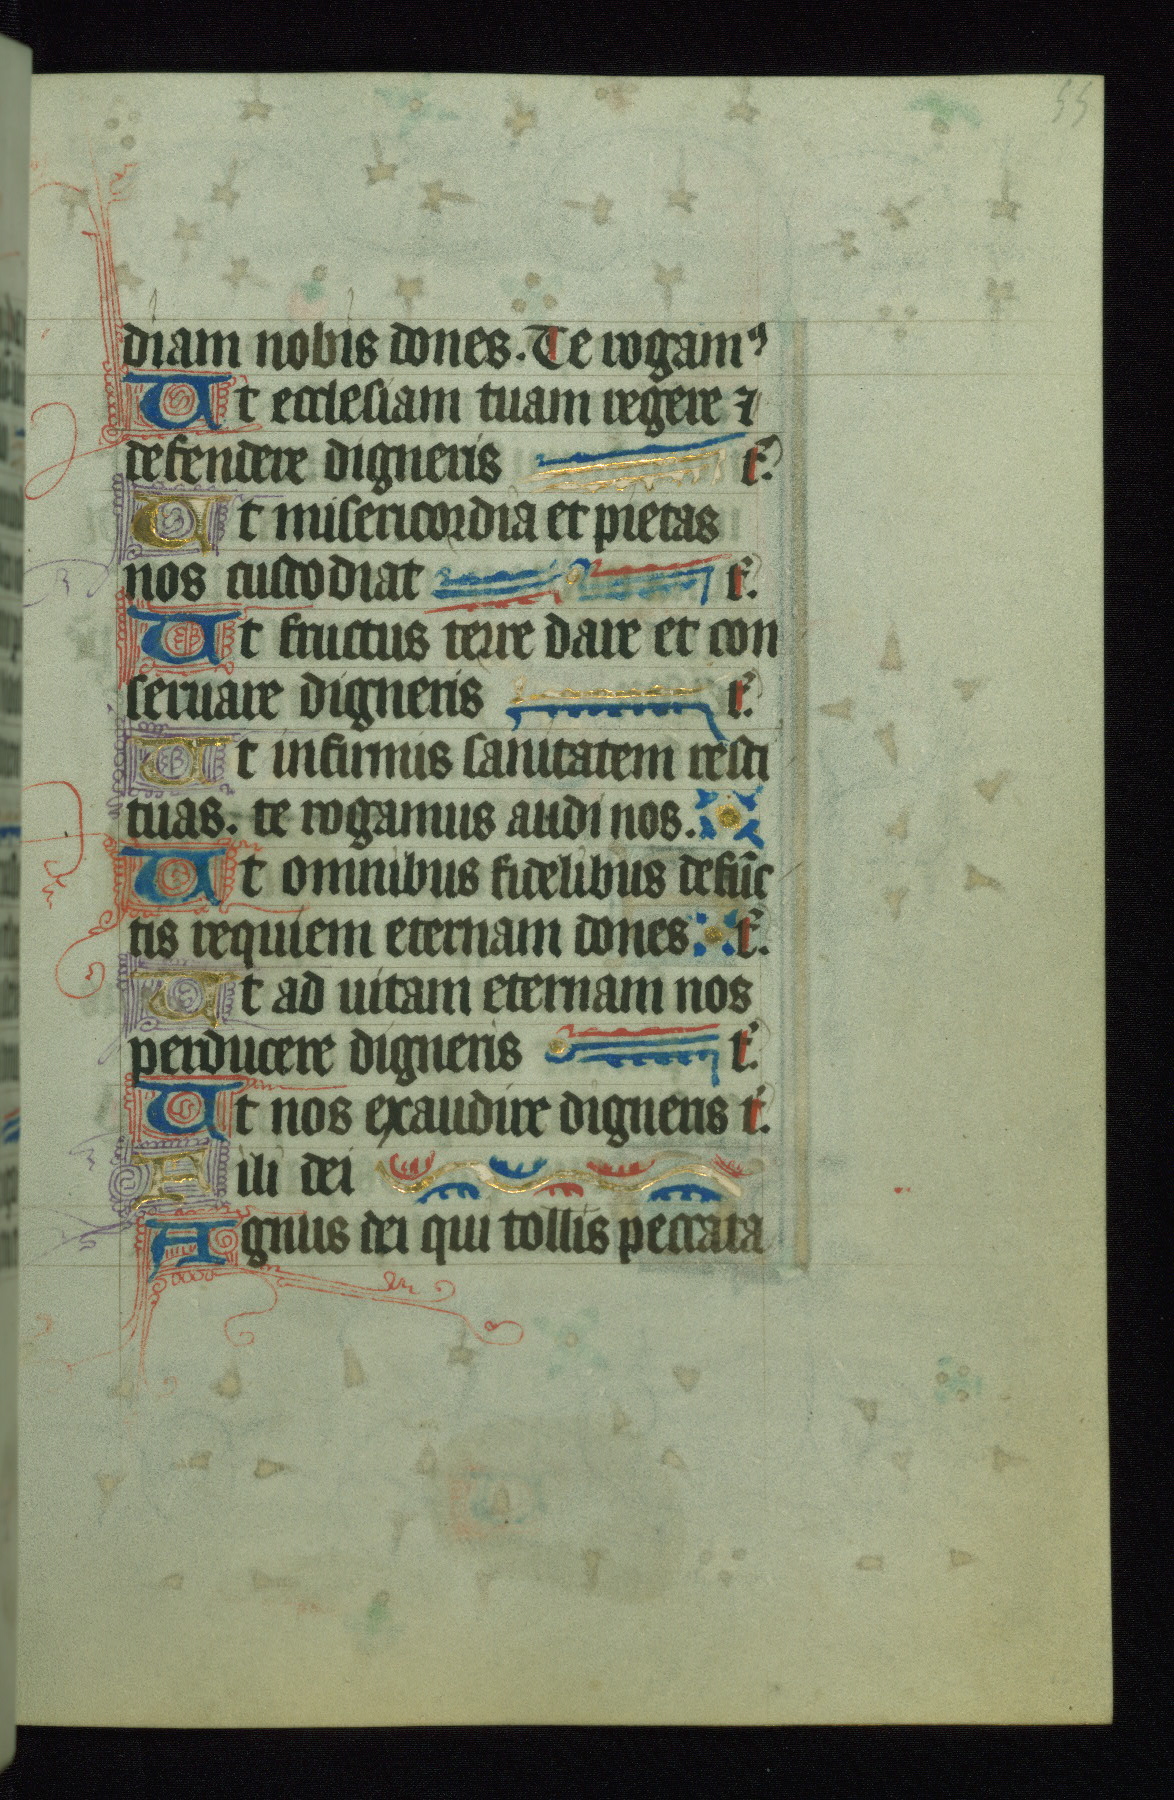 55
diam nobis dones. Te rogamꝰ
Ut ecclesiam tuam regere ⁊
defendere digneris t̄.
Ut misericordia et pietas
nos custodiat t̄.
Ut fructus terre dare et con
seruare digneris t̄.
Ut infirmis sanitatem resti
tuas. te rogamus audi nos.
Ut omnibus fidelibus defūc
tis requiem eternam dones t̄.
Ut ad uitam eternam nos
perducere digneris t̄.
Ut nos exaudire digneris t̄.
Fili dei
Agnus dei qui tollis peccata